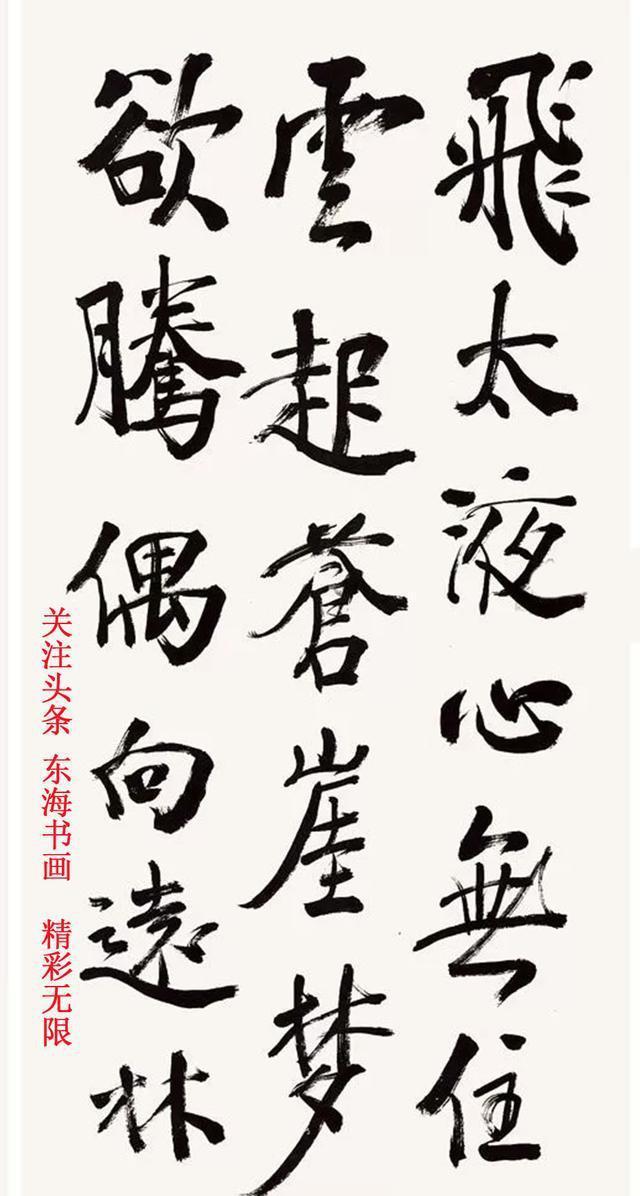 飛太液心無住
雲起蒼崖梦
欲騰偶向遠林
关注头条 东海书画 精彩无限